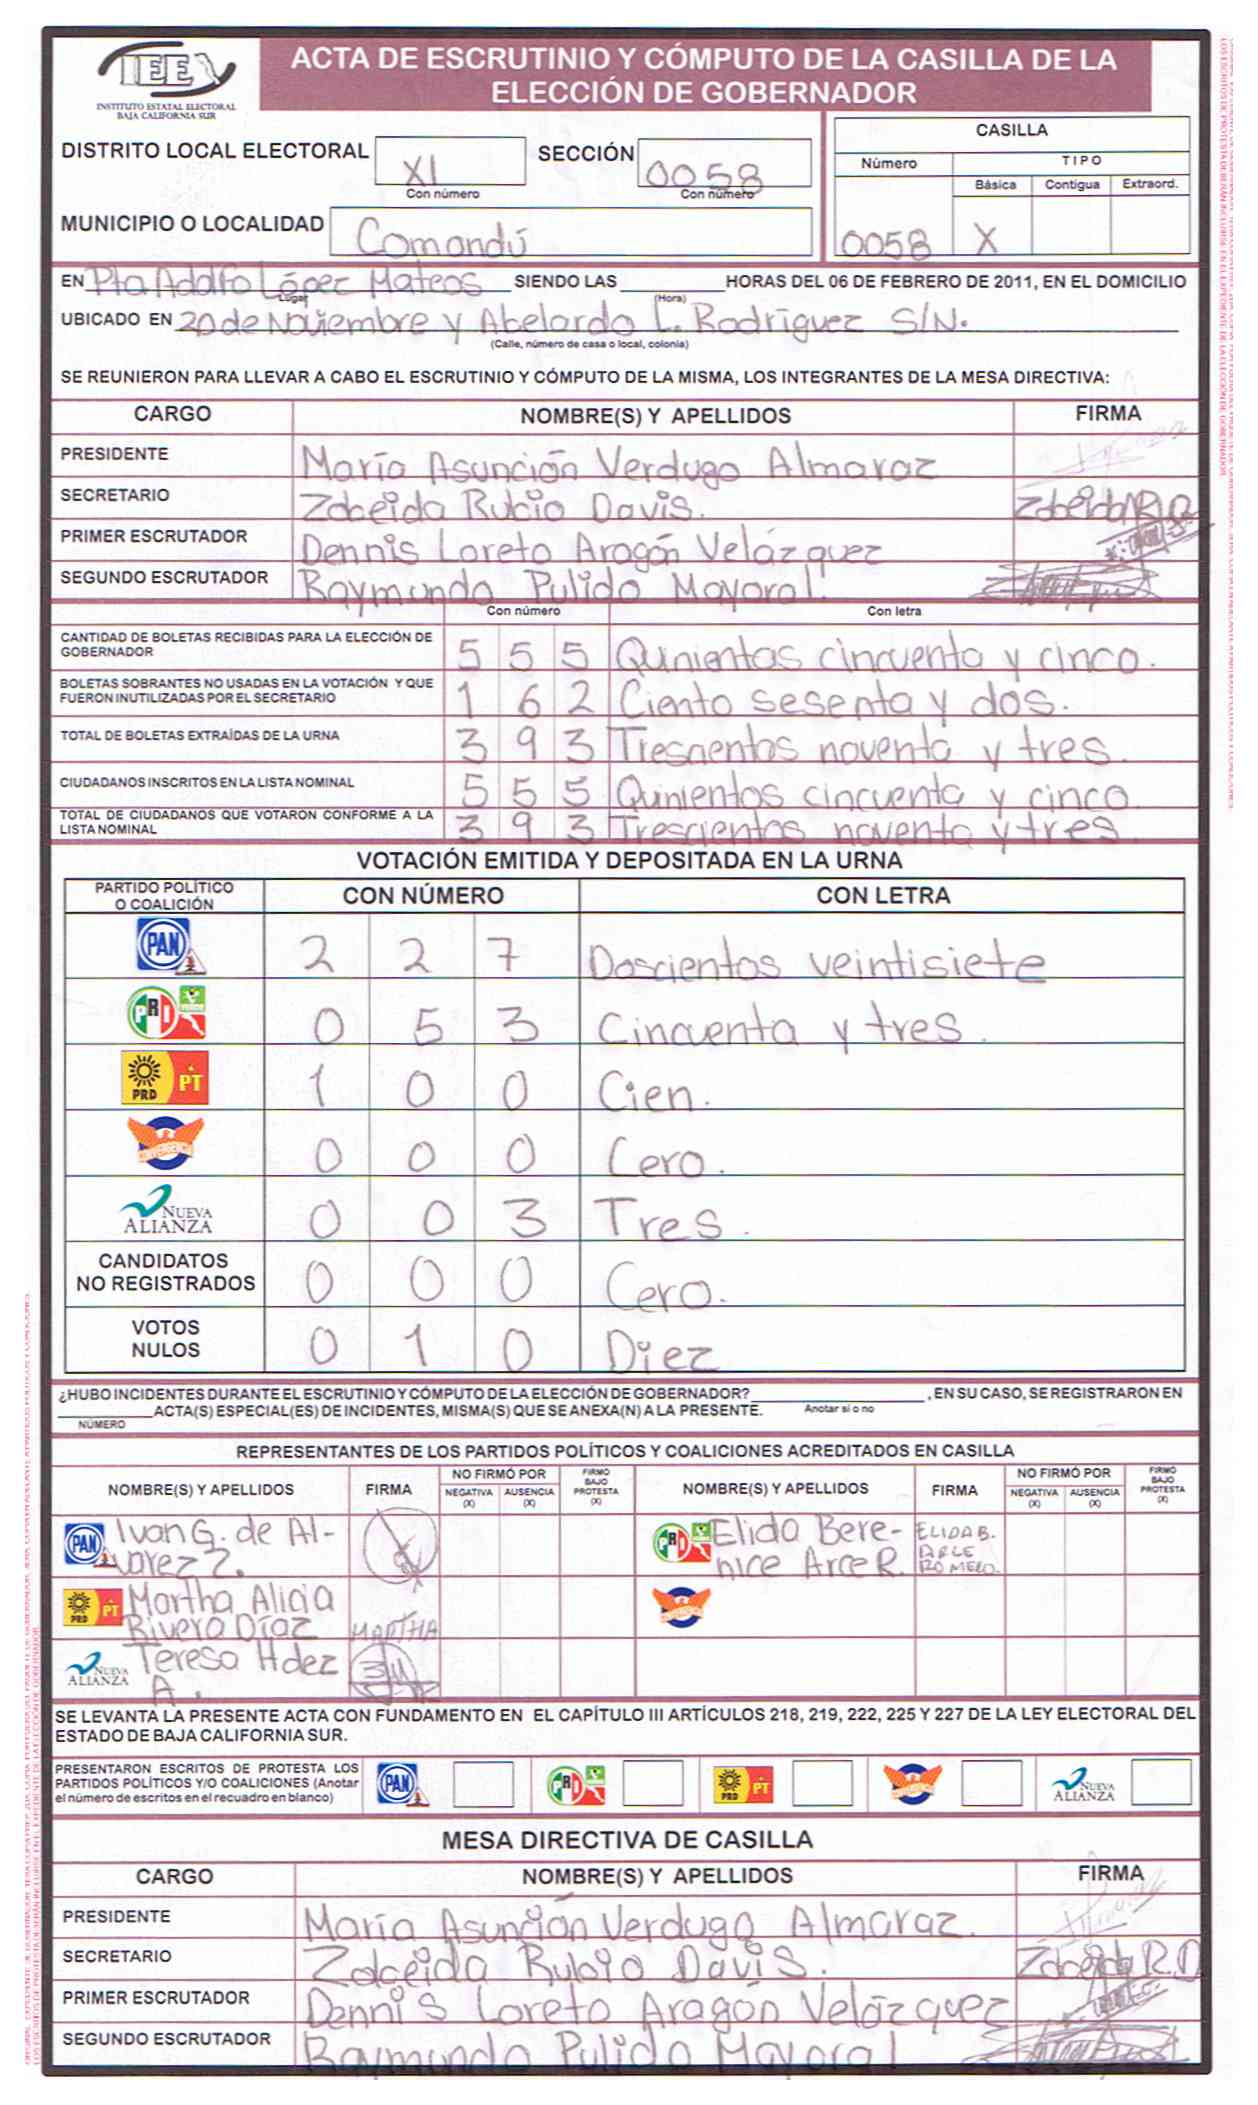 IEE
INSTITUTO ESTATAL ELECTORAL
BAJA CALIFORNIA SUR
ACTA DE ESCRUTINIO Y CÓMPUTO DE LA CASILLA DE LA
ELECCIÓN DE GOBERNADOR
DISTRITO LOCAL ELECTORAL XI
Con número
SECCIÓN 0058
Con número
MUNICIPIO O LOCALIDAD Comondú
CASILLA
Número TIPO
Básica Contigua Extraord.
0058 X
EN Pto Adolfo López Mateos SIENDO LAS HORAS DEL 06 DE FEBRERO DE 2011, EN EL DOMICILIO
Lugar (Hora)
UBICADO EN 20 de Noviembre y Abelardo L. Rodríguez S/N.
(Calle, número de casa o local, colonia)
SE REUNIERON PARA LLEVAR A CABO EL ESCRUTINIO Y CÓMPUTO DE LA MISMA, LOS INTEGRANTES DE LA MESA DIRECTIVA:
CARGO NOMBRE(S) Y APELLIDOS FIRMA
PRESIDENTE María Asunción Verdugo Almaraz
SECRETARIO Zobeida Rubio Davis. Zobeida R.D.
PRIMER ESCRUTADOR Dennis Loreto Aragón Velázquez
SEGUNDO ESCRUTADOR Raymundo Pulido Mayoral
Con número Con letra
CANTIDAD DE BOLETAS RECIBIDAS PARA LA ELECCIÓN DE
GOBERNADOR 5 5 5 Quinientos cincuenta y cinco.
BOLETAS SOBRANTES NO USADAS EN LA VOTACIÓN Y QUE
FUERON INUTILIZADAS POR EL SECRETARIO 1 6 2 Ciento sesenta y dos.
TOTAL DE BOLETAS EXTRAÍDAS DE LA URNA 3 9 3 Trescientos noventa y tres.
CIUDADANOS INSCRITOS EN LA LISTA NOMINAL 5 5 5 Quinientos cincuenta y cinco.
TOTAL DE CIUDADANOS QUE VOTARON CONFORME A LA
LISTA NOMINAL 3 9 3 Trescientos noventa y tres.
VOTACIÓN EMITIDA Y DEPOSITADA EN LA URNA
PARTIDO POLÍTICO
O COALICIÓN CON NÚMERO CON LETRA
PAN 2 2 7 Doscientos veintisiete
PRI 0 5 3 Cincuenta y tres.
PRD PT 1 0 0 Cien.
CONVERGENCIA 0 0 0 Cero.
NUEVA ALIANZA 0 0 3 Tres.
CANDIDATOS
NO REGISTRADOS 0 0 0 Cero.
VOTOS
NULOS 0 1 0 Diez
¿HUBO INCIDENTES DURANTE EL ESCRUTINIO Y CÓMPUTO DE LA ELECCIÓN DE GOBERNADOR? , EN SU CASO, SE REGISTRARON EN
ACTA(S) ESPECIAL(ES) DE INCIDENTES, MISMA(S) QUE SE ANEXA(N) A LA PRESENTE. Anotar si o no
NÚMERO
REPRESENTANTES DE LOS PARTIDOS POLÍTICOS Y COALICIONES ACREDITADOS EN CASILLA
NOMBRE(S) Y APELLIDOS FIRMA NO FIRMÓ POR NEGATIVA (X) AUSENCIA (X) FIRMO BAJO PROTESTA (X) NOMBRE(S) Y APELLIDOS FIRMA NO FIRMÓ POR NEGATIVA (X) AUSENCIA (X) FIRMO BAJO PROTESTA (X)
PAN Ivan G. de Al-
varez Z.
PRI Elida Bere-
nice Arce R. ELIDA B.
ARCE
ROMERO.
PRD PT Martha Alicia
Rivera Díaz MARTHA
NUEVA ALIANZA Teresa Hdez
A.
SE LEVANTA LA PRESENTE ACTA CON FUNDAMENTO EN EL CAPÍTULO III ARTÍCULOS 218, 219, 222, 225 Y 227 DE LA LEY ELECTORAL DEL
ESTADO DE BAJA CALIFORNIA SUR.
PRESENTARON ESCRITOS DE PROTESTA LOS
PARTIDOS POLÍTICOS Y/O COALICIONES (Anotar
el número de escritos en el recuadro en blanco) PAN PRI PRD PT CONVERGENCIA NUEVA ALIANZA
MESA DIRECTIVA DE CASILLA
CARGO NOMBRE(S) Y APELLIDOS FIRMA
PRESIDENTE María Asunción Verdugo Almaraz.
SECRETARIO Zobeida Rubio Davis. Zobeida R.D
PRIMER ESCRUTADOR Dennis Loreto Aragón Velázquez
SEGUNDO ESCRUTADOR Raymundo Pulido Mayoral